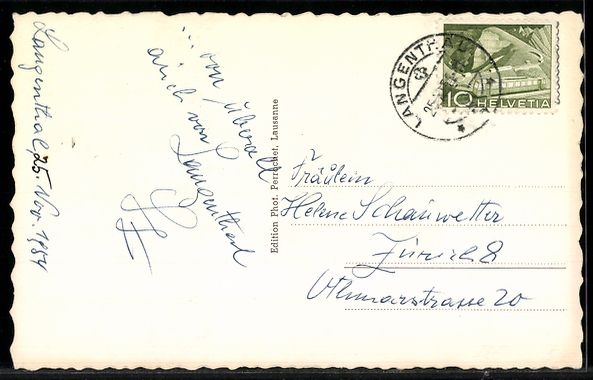 Langenthal, 25. Nov. 1954
... von überall
auch von
Langenthal
Edition Phot. Perrochet, Lausanne
LANGENTHAL
10 HELVETIA
Fräulein
Helene Schauwetter
Zürich 8
Othmarstrasse 20